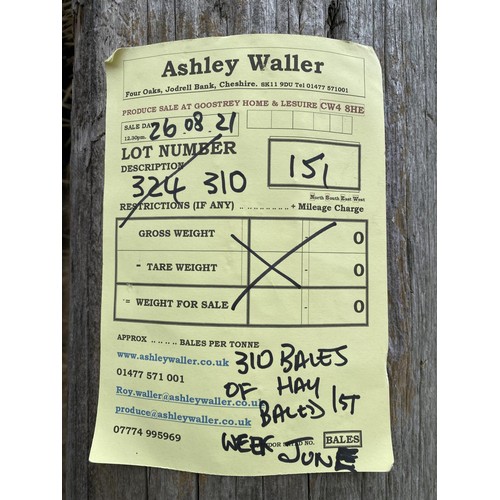 Ashley Waller
Four Oaks, Jodrell Bank, Cheshire. SK11 9DU Tel 01477 571001
PRODUCE SALE AT GOOSTREY HOME & LESUIRE CW4 8HE
SALE DATE 26.08.21
12.30pm.
LOT NUMBER 151
DESCRIPTION
324 310
North South East West
RESTRICTIONS (IF ANY) .. .. .. .. .. .. .. .. + Mileage Charge
GROSS WEIGHT - 0
- TARE WEIGHT - 0
= WEIGHT FOR SALE - 0
APPROX .. .. .. .. BALES PER TONNE
www.ashleywaller.co.uk
01477 571 001
Roy.waller@ashleywaller.co.uk
produce@ashleywaller.co.uk
07774 995969
310 BALES
OF HAY
BALED 1ST
WEEK JUNE
NO. BALES